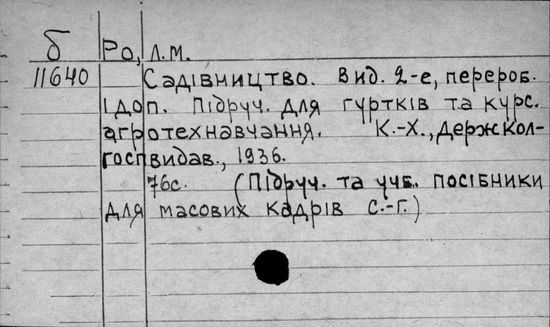 б Ро, Л.М.
11640 Садівництво. Вид. 2-е, перероб.
і доп. Підруч. для гуртків та курс.
агротехнавчання. К.-Х., Держкол-
госпвидав., 1936.
76с. (Підруч. та учб. посібники
для масових кадрів С.-Г.)